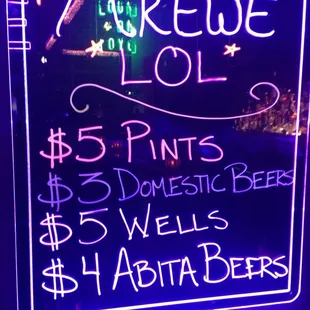 KREWE
LOL
$5 PINTS
$3 DOMESTIC BEERS
$5 WELLS
$4 ABITA BEERS